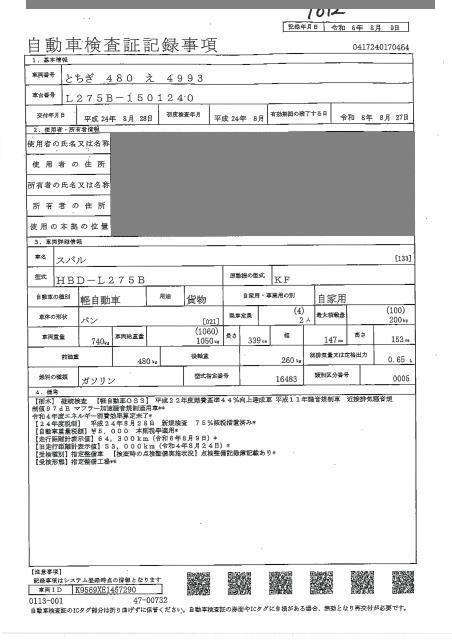 1012
記録年月日 令和 6年 8月 9日
自動車検査証記録事項
0417240170464
1. 基本情報
車両番号 とちぎ 480 え 4993
車台番号 L275B-1501240
交付年月日 平成 24年 8月 28日 初度検査年月 平成 24年 8月 有効期間の満了する日 令和 8年 8月 27日
2. 使用者・所有者情報
使用者の氏名又は名称
使用者の住所
所有者の氏名又は名称
所有者の住所
使用の本拠の位置
3. 車両詳細情報
車名 スバル [133]
型式 HBD-L275B 原動機の型式 KF
自動車の種別 軽自動車 用途 貨物 自家用・事業用の別 自家用
車体の形状 バン [021] 乗車定員 (4) 2人 最大積載量 (100) 200kg
車両重量 740kg 車両総重量 (1060) 1050kg 長さ 339cm 幅 147cm 高さ 153cm
前軸重 480kg 後軸重 260kg 総排気量又は定格出力 0.65 L
燃料の種類 ガソリン 型式指定番号 16483 類別区分番号 0005
4. 備考
継続検査 【軽自動車OSS】 平成22年度燃費基準44%向上達成車 平成11年騒音規制車 近接排気騒音規
制値97dB マフラー加速騒音規制適用車**
令和4年度エネルギー消費効率算定未了*
【24年度税制】 平成24年8月28日 新規検査 75%減税措置済み*
【自動車重量税額】 ¥5,000 本則税率適用*
【走行距離計表示値】 64,300km (令和6年8月9日)*
【旧走行距離計表示値】 53,000km (令和4年8月24日)*
【受検種別】 指定整備車 【検査時の点検整備実施状況】 点検整備記録簿記載あり*
【受検形態】 指定整備工場**
【注意事項】
記録事項はシステム登録時点の情報となります
車両ID K9569XE1457290
0113-001 47-00732
自動車検査証のICタグ部分は折り曲げずに保管ください。自動車検査証の券面やICタグに毀損がある場合、無効となり再交付が必要です。